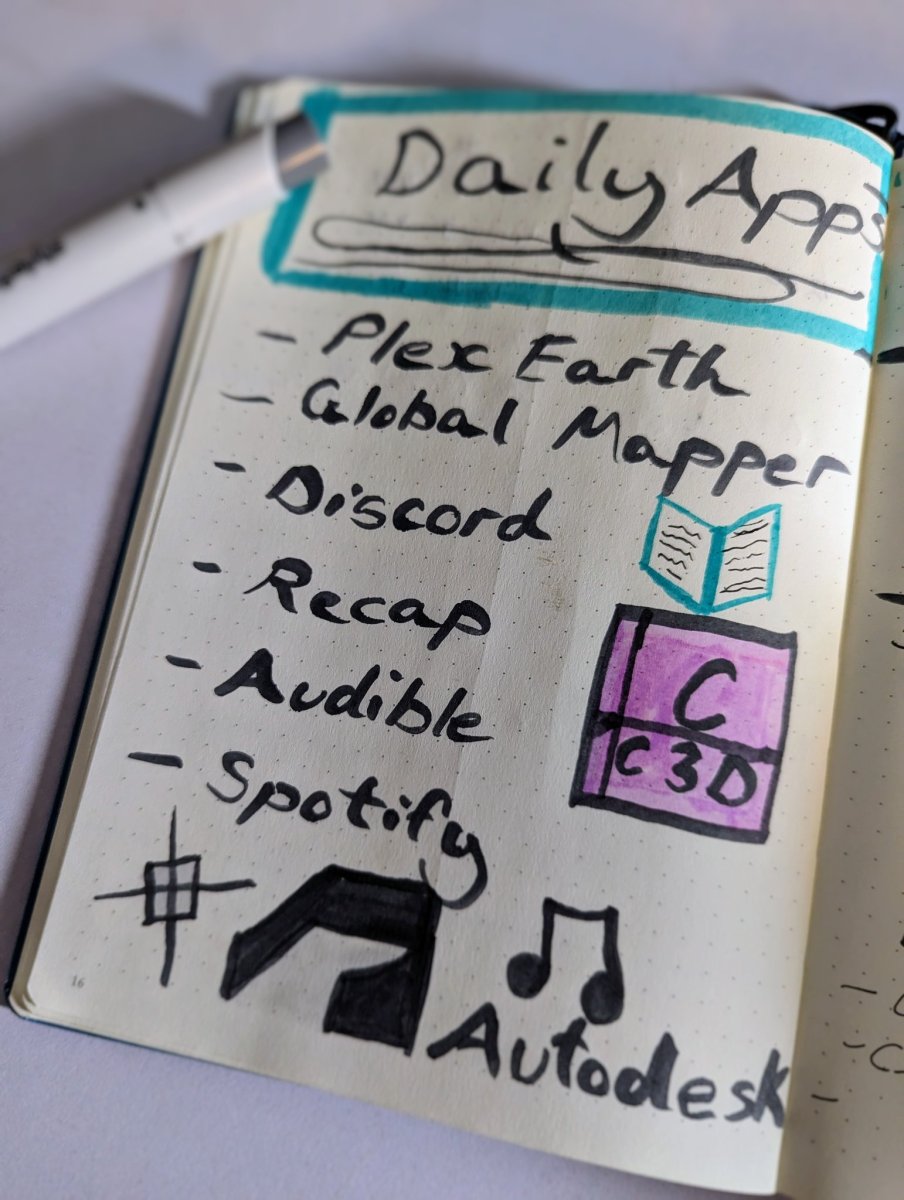 Daily Apps
- Plex Earth
- Global Mapper
- Discord
- Recap
- Audible
- Spotify
C
C3D
Autodesk
16